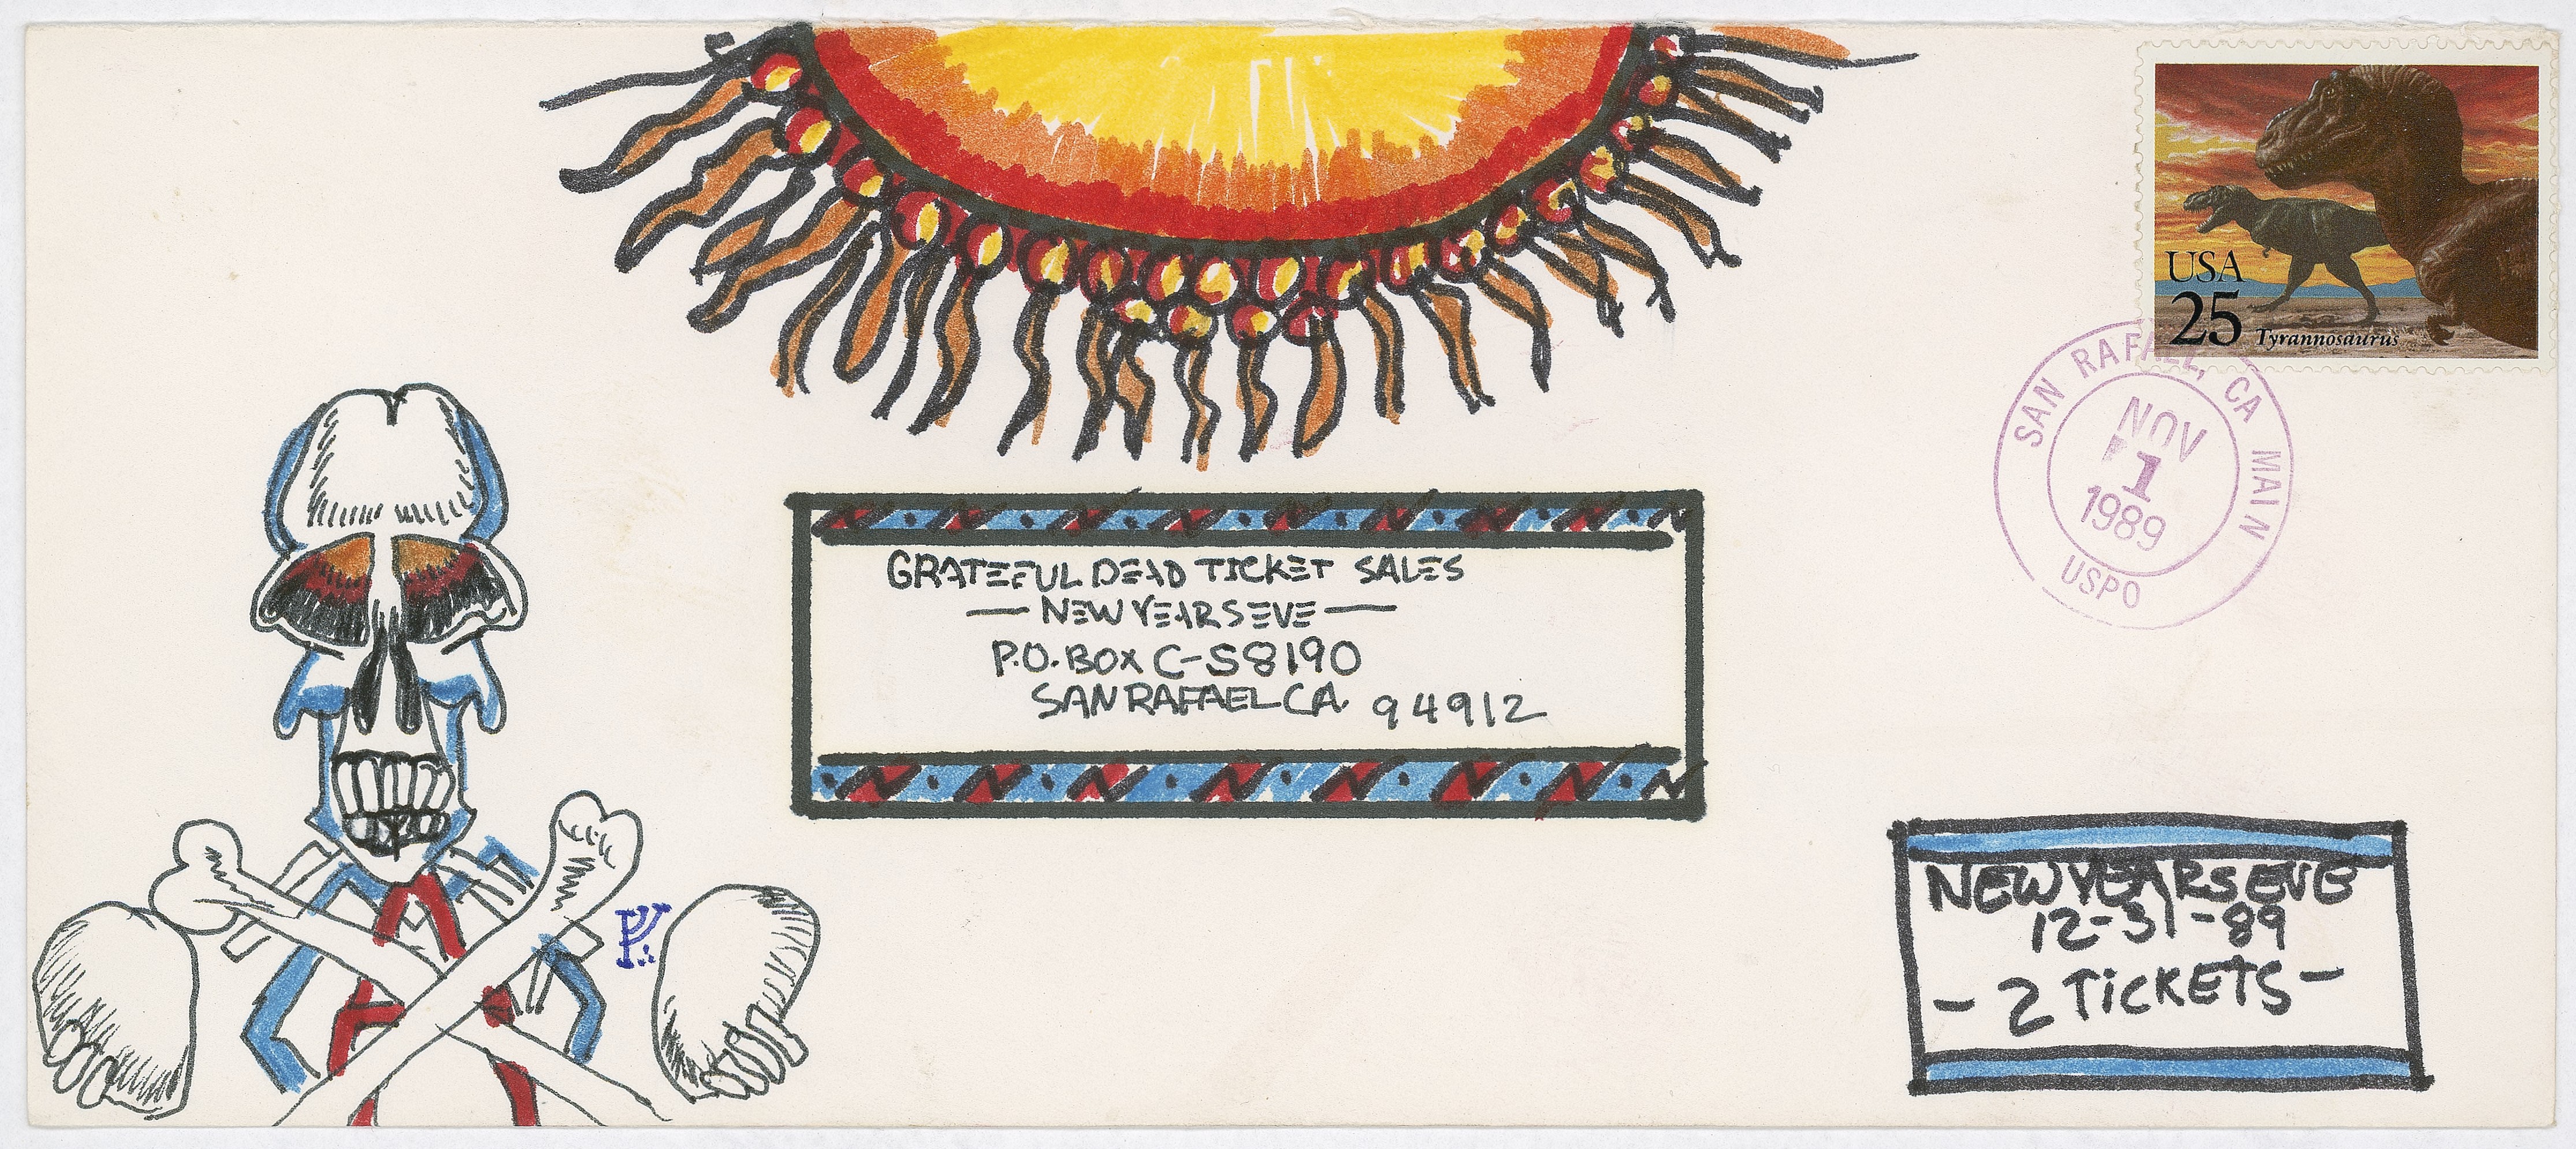 USA
25
Tyrannosaurus
SAN RAFAEL, CA MAIN
NOV
1
1989
USPO
GRATEFUL DEAD TICKET SALES
— NEW YEARS EVE —
P.O. BOX C-S8190
SAN RAFAEL CA 94912
NEW YEARS EVE
12-31-89
- 2 TICKETS -